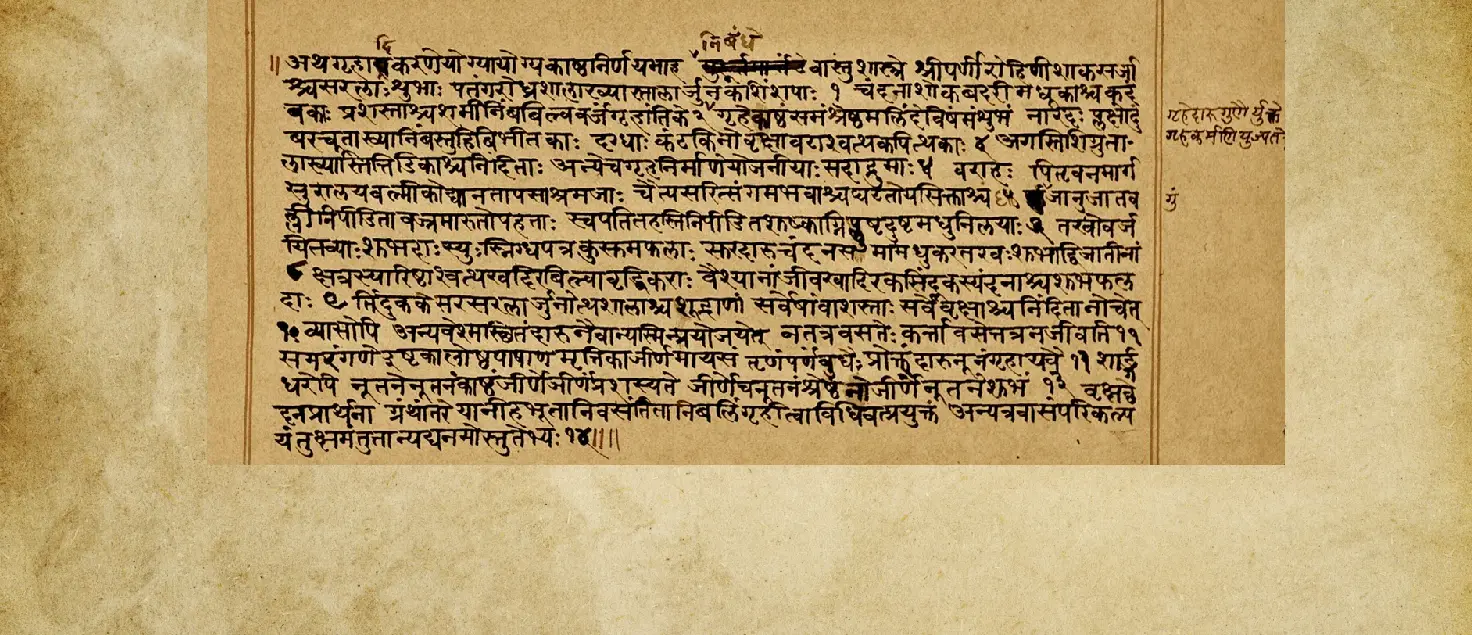 दि
निबंधे
॥अथगृहादिकरणेयोग्यायोग्यकाष्ठनिर्णयमाह वास्तुशास्त्रे श्रीपर्णीरोहिणीशाकसर्जा
श्चसरलाःशुभाः पतंगरोध्रशालाख्यास्तालार्जुनकशिंशपाः १ चंदनाशोकबदरीमधुकाश्च
प्रशस्ताश्चशमीनिंबबिल्ववर्जंगृहांतिके २ गृहे समंश्रेष्ठमलिंदेविषमंशुभं नारदः
गृहेदारुगुणैर्युक्ते
गृहकर्मणि
चूताख्यानिंबस्नुहिबिभीतकाः दग्धाः कंटकिनोवृक्षावटाश्वत्थकपित्थकाः ४ अगस्तिशिग्रुता-
लाख्यास्तिंतिडिकाश्चनिंदिताः अन्येचगृहनिर्माणेयोजनीयाः ५ वराहः पितृवनमार्ग
सुरालयवल्मीकोद्यानतापसाश्रमजाः चैत्यसरित्संगमभवाश्चघटतोयसिक्ताश्च जानुजातव
ल्लीनिपीडितावज्रमारुतोपहताः स्वपतितहस्तिनिपीडितशुष्काग्निप्लुष्टदुष्टमधुनिलयाः ७ तरवोवर्ज
यितव्याःशुभदाःस्युःस्निग्धपत्रकुसुमफलाः सुरदारुचंदनसमीमधुकतरवःशुभाद्विजातीनां
क्षत्रस्यारिष्टाश्वत्थखदिरबिल्वावृद्धिकराः वैश्यानांजीवखादिरकसिंदुकस्यंदनाश्चशुभफल
दाः ९ तिंदुककेसरसरलार्जुनोत्थशालाश्चशूद्राणां सर्वेषांवाशस्ताः सर्वेवृक्षाश्चनिंदितानोचेत्
१० व्यासोपि अन्यवेश्मस्थितंदारुनैवान्यस्मिन्प्रयोजयेत् नतत्रवसतेःकर्त्तावसेत्तत्रनजीवति ११
समरांगणे मृत्तिकाजीर्णमायसं तृणंपर्णंबुधैःप्रोक्तंदारुनूनंगृहायवै ११ शार्ङ्ग
धरोपि नूतनेनूतनंकाष्ठंजीर्णेजीर्णंप्रशस्यते जीर्णेचनूतनंश्रेष्ठंनोजीर्णंनूतनेशुभं १३ वृक्षच्छे
दनप्रार्थना ग्रंथांतरे यानीहभूतानिवसंतितानिबलिंगृहीत्वाविधिवत्प्रयुक्तं अन्यत्रवासंपरिकल्प
यंतुक्षमंतुतान्यद्यनमोस्तुतेभ्यः १४॥॥